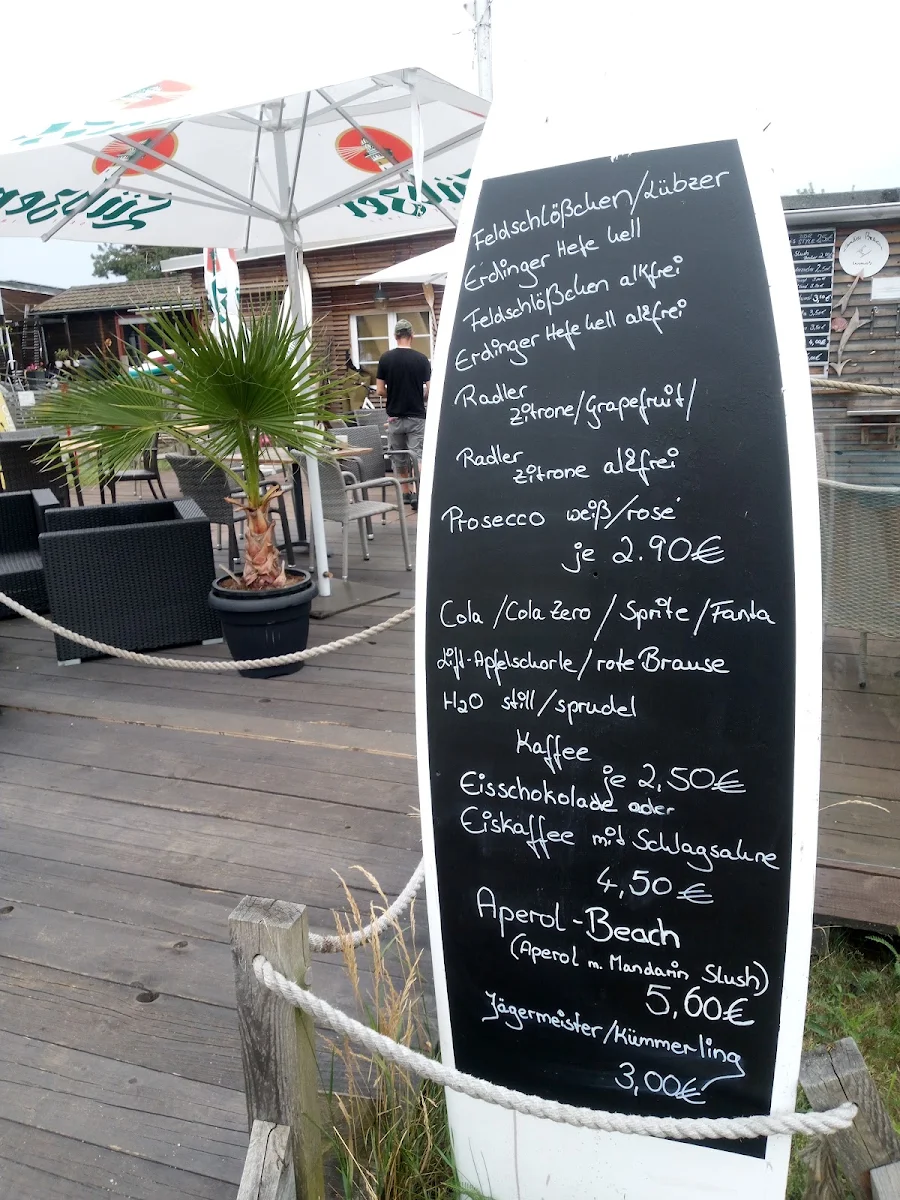 Lübzer
Feldschlößchen/Lübzer
Erdinger Hefe hell
Feldschlößchen alkfrei
Erdinger Hefe hell alkfrei
Radler
Zitrone/Grapefruit/
Radler
Zitrone alkfrei
Prosecco weiß/rosé
je 2.90€
Cola/Cola Zero/Sprite/Fanta
Lift-Apfelschorle/rote Brause
H2O still/sprudel
Kaffee
je 2,50€
Eisschokolade oder
Eiskaffee mit Schlagsahne
4,50€
Aperol-Beach
(Aperol m. Mandarin Slush)
5,60€
Jägermeister/Kümmerling
3,00€